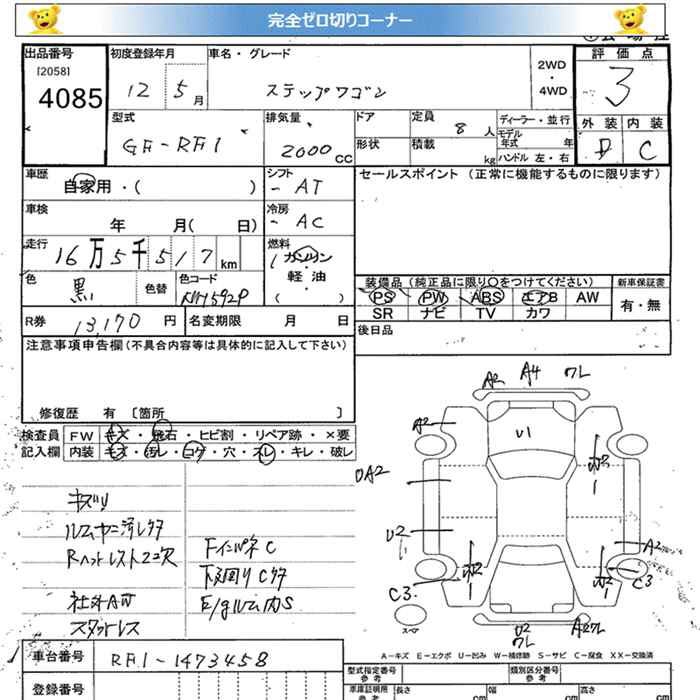 完全ゼロ切りコーナー
出品番号
[2058]
4085
初度登録年月
12 5月
車名・グレード
ステップワゴン
2WD
・
4WD
評価点
3
外装 内装
D C
型式
GF-RF1
排気量
2000 CC
ドア
形状
定員 8 人
積載 kg
ディーラー・並行
モデル
年式 年
ハンドル 左・右
車歴
自家用・( )
シフト
AT
車検
年 月( 日)
冷房
AC
走行
16万5千517 km
燃料
ガソリン
軽油
・
( )
色
黒
色替
色コード
NH592P
R券 13,170 円
名変期限 月 日
セールスポイント (正常に機能するものに限ります)
装備品 (純正品に限り○をつけてください)
PS PW ABS エアB AW
SR ナビ TV カワ
新車保証書
有・無
後日品
注意事項申告欄(不具合内容等は具体的に記入して下さい)
修復歴 有 〔箇所 〕
検査員
記入欄
FW キズ・飛石・ヒビ割・リペア跡・×要
内装 キズ・汚レ・コゲ・穴・スレ・キレ・破レ
キズ,ル
Rヘットレスト2コ欠
社外AW
スタットレス
FインパネC
下廻りCタ
E/gルーム内S
A2 A4 ワレ
A2
U1
A2
U2
C3
A2
C3
スペア
U2
ワレ
A-キズ E-エクボ U-凹み W-補修跡 S-サビ C-腐食 XX-交換済
車台番号 RF1-1473458
登録番号
型式指定番号
参考
類別区分番号
参考
車庫証明用
参考
長さ cm
幅 cm
高さ cm